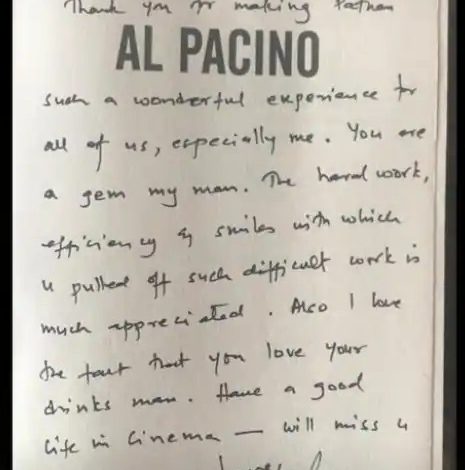 Thank you for making Pathan
AL PACINO
such a wonderful experience for
all of us, especially me. You are
a gem my man. The hard work,
efficiency & smiles with which
u pulled off such difficult work is
much appreciated. Also I love
the fact that you love your
drinks man. Have a good
life in Cinema — will miss u